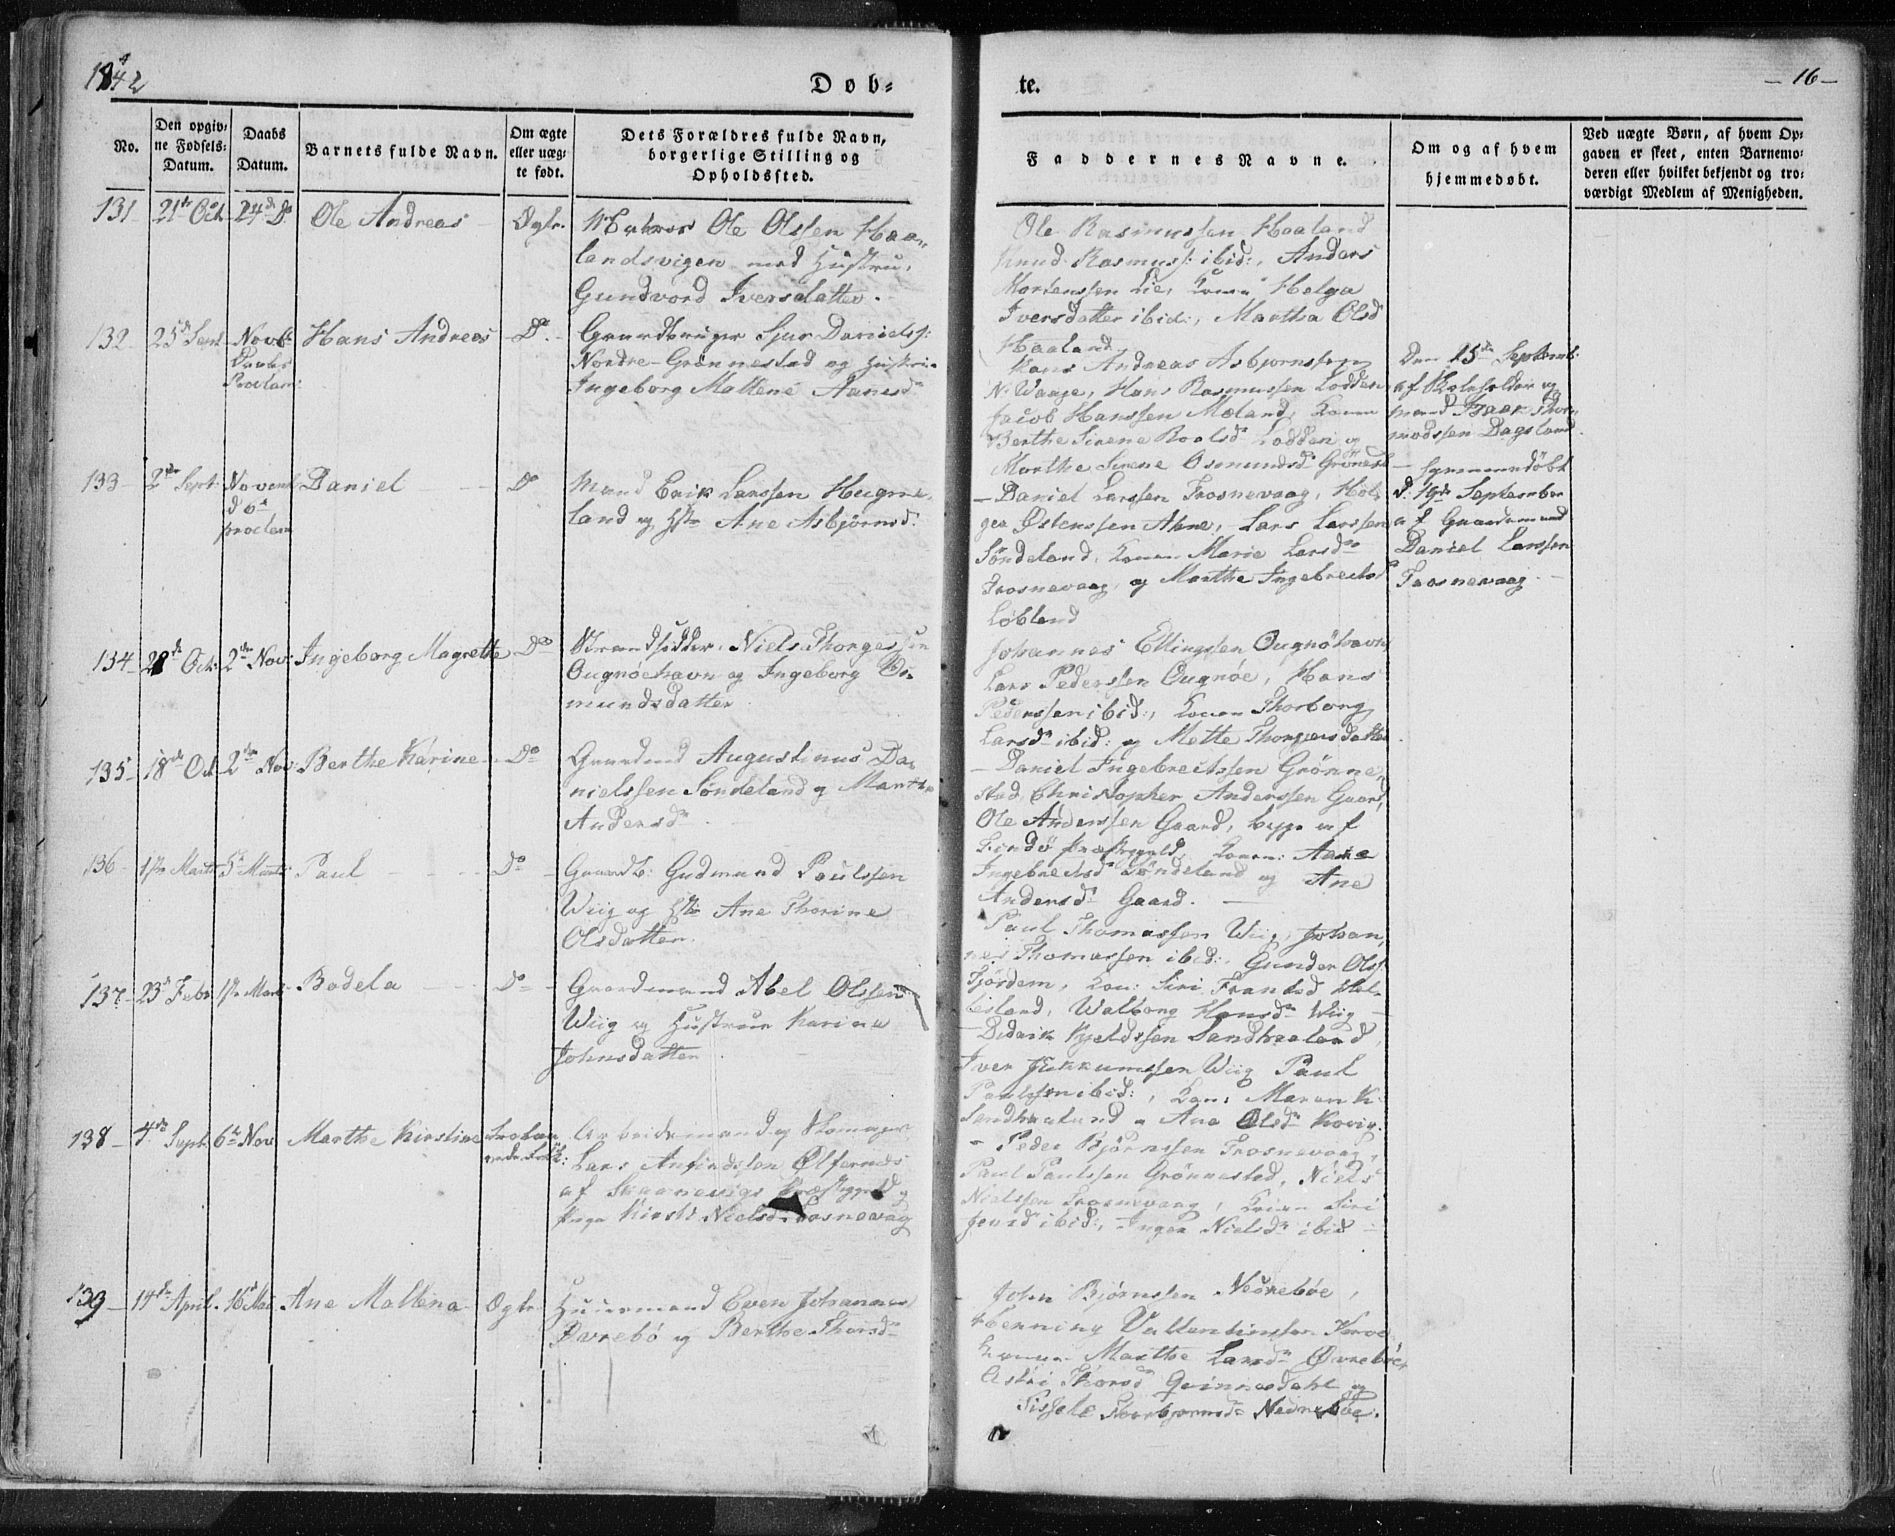 1842
Døb-
te.
- 16 -
No.
Den opgiv-
ne Fødsels-
Datum.
Daabs
Datum.
Barnets fulde Navn.
Om ægte
eller uæg-
te født.
Dets Forældres fulde Navn,
borgerlige Stilling og
Opholdssted.
Faddernes Navne.
Om og af hvem
hjemmedøbt.
Ved uægte Børn, af hvem Op-
gaven er skeet, enten Barnemo-
deren eller hvilket bekjendt og tro-
værdigt Medlem af Menigheden.
131 21de Oct. 24de Do Ole Andreas Ægte.
Ole Olssen Haa-
landsvigen med Hustru
Gundvord Iversdatter.
Ole Rasmussen Haaland
Knud Rasmuss: ibid:, Anders
Mortenssen Lie, Konen Helga
Iversdatter ibid:, Martha Olsd
Haaland
132 25de Sept Novbr Hans Andreas Do
proclam:
Gaardbruger Sjur Daniels:
Nordre-Grønnestad og Hustru
Ingeborg Mallene Aanesd
Hans Andreas Asbjørnssen
N: Waage, Hans Rasmussen Lodden
Jacob Hanssen Mæland, Konen
Berthe Sirene Roalsd Lodden og
Marthe Sirene Osmundsd Grønest
Den 25de Septemb:
af Skoleholder og
mand Isaak Thor-
modssen Dagsland
133 2den Sept: Novemb Daniel Do
d 6te
proclam
Mand Erik Larssen Hegre-
land og Hst Ane Asbjørnsd:
Daniel Larssen Trosnevaag, Hol-
ger Østenssen Ahne, Lars Larssen
Søndeland, Konen Marie Larsd
Trosnevaag, og Marthe Ingebrectsd
Løbland
hjemmedøbt
d: 19de September
af Gaardmand
Daniel Larssen
Trosnevaag
134 28de Oct: 2den Nov: Ingeborg Magrethe Do
Strandsidder. Niels Thorgerssen
Ougnøehavn og Ingeborg Os-
mundsdatter
Johannes Ellingssen Ougnøhavn
Lars Pederssen Ougnøe, Hans
Pederssen ibid:, Konen Thorborg
Larsd ibid: og Mette Thorgersdatter
135 18de Oct 2den Nov: Berthe Karine Do
Gaardmd Augustinus Da-
nielssen Søndeland og Marthe
Andersd
Daniel Ingebrectssen Grønne-
stad Christopher Anderssen Gaard,
Ole Anderssen Gaard, begge af
Findø Præstegjeld, Konen: Aane
Ingebrectsd Søndeland og Ane
Andersd Gaard.
136 1ste Marts 5te Marts Paul Do
Gaardb: Gudmund Paulssen
Wiig og Hst Ane Thorine
Olsdatter.
Paul Thomassen Wiig, Johan-
nes Thomassen ibid:, Gunder Ols:
Fjørdem, Kon: Siri
Walborg Hansd Wiig
137 23de Febr 1ste Marts Bodela Do
Gaardmand Abel Olssen
Wiig og Hustrue Karine
Johnsdatter
Didrik Kjeldssen Sandhaaland,
Iver Wiig Paul
Paulssen ibid:, Kon: Maren K:
Sandhaaland og Ane Olsd
138 4de Sept. 6te Nov Marthe Kirstine
Arbeidsmand og
Lars Anfindssen Ølfernes
af Skaanevigs Præstegjeld og
Pige Kirsti Nielsd. Tosnevag
Peder Bjørnssen Trosnevaag,
Paul Paulssen Grønnestad, Niels
Nielssen Trosnevaag, Konen Siri
ibid:, Inger Nielsd ibid
139 14de April. 16 Mai. Ane Mallena Ægte
Huusmand Even Johannes
Øvrebø og Berthe Thorsd
John Bjørnssen Nedrebøe,
Henning Vallentinssen
Konen Marthe Larsd Øvrebøe,
Thorsd Qvinnesdahl og
Sissele Thorbjørnsd Nedrebøe.